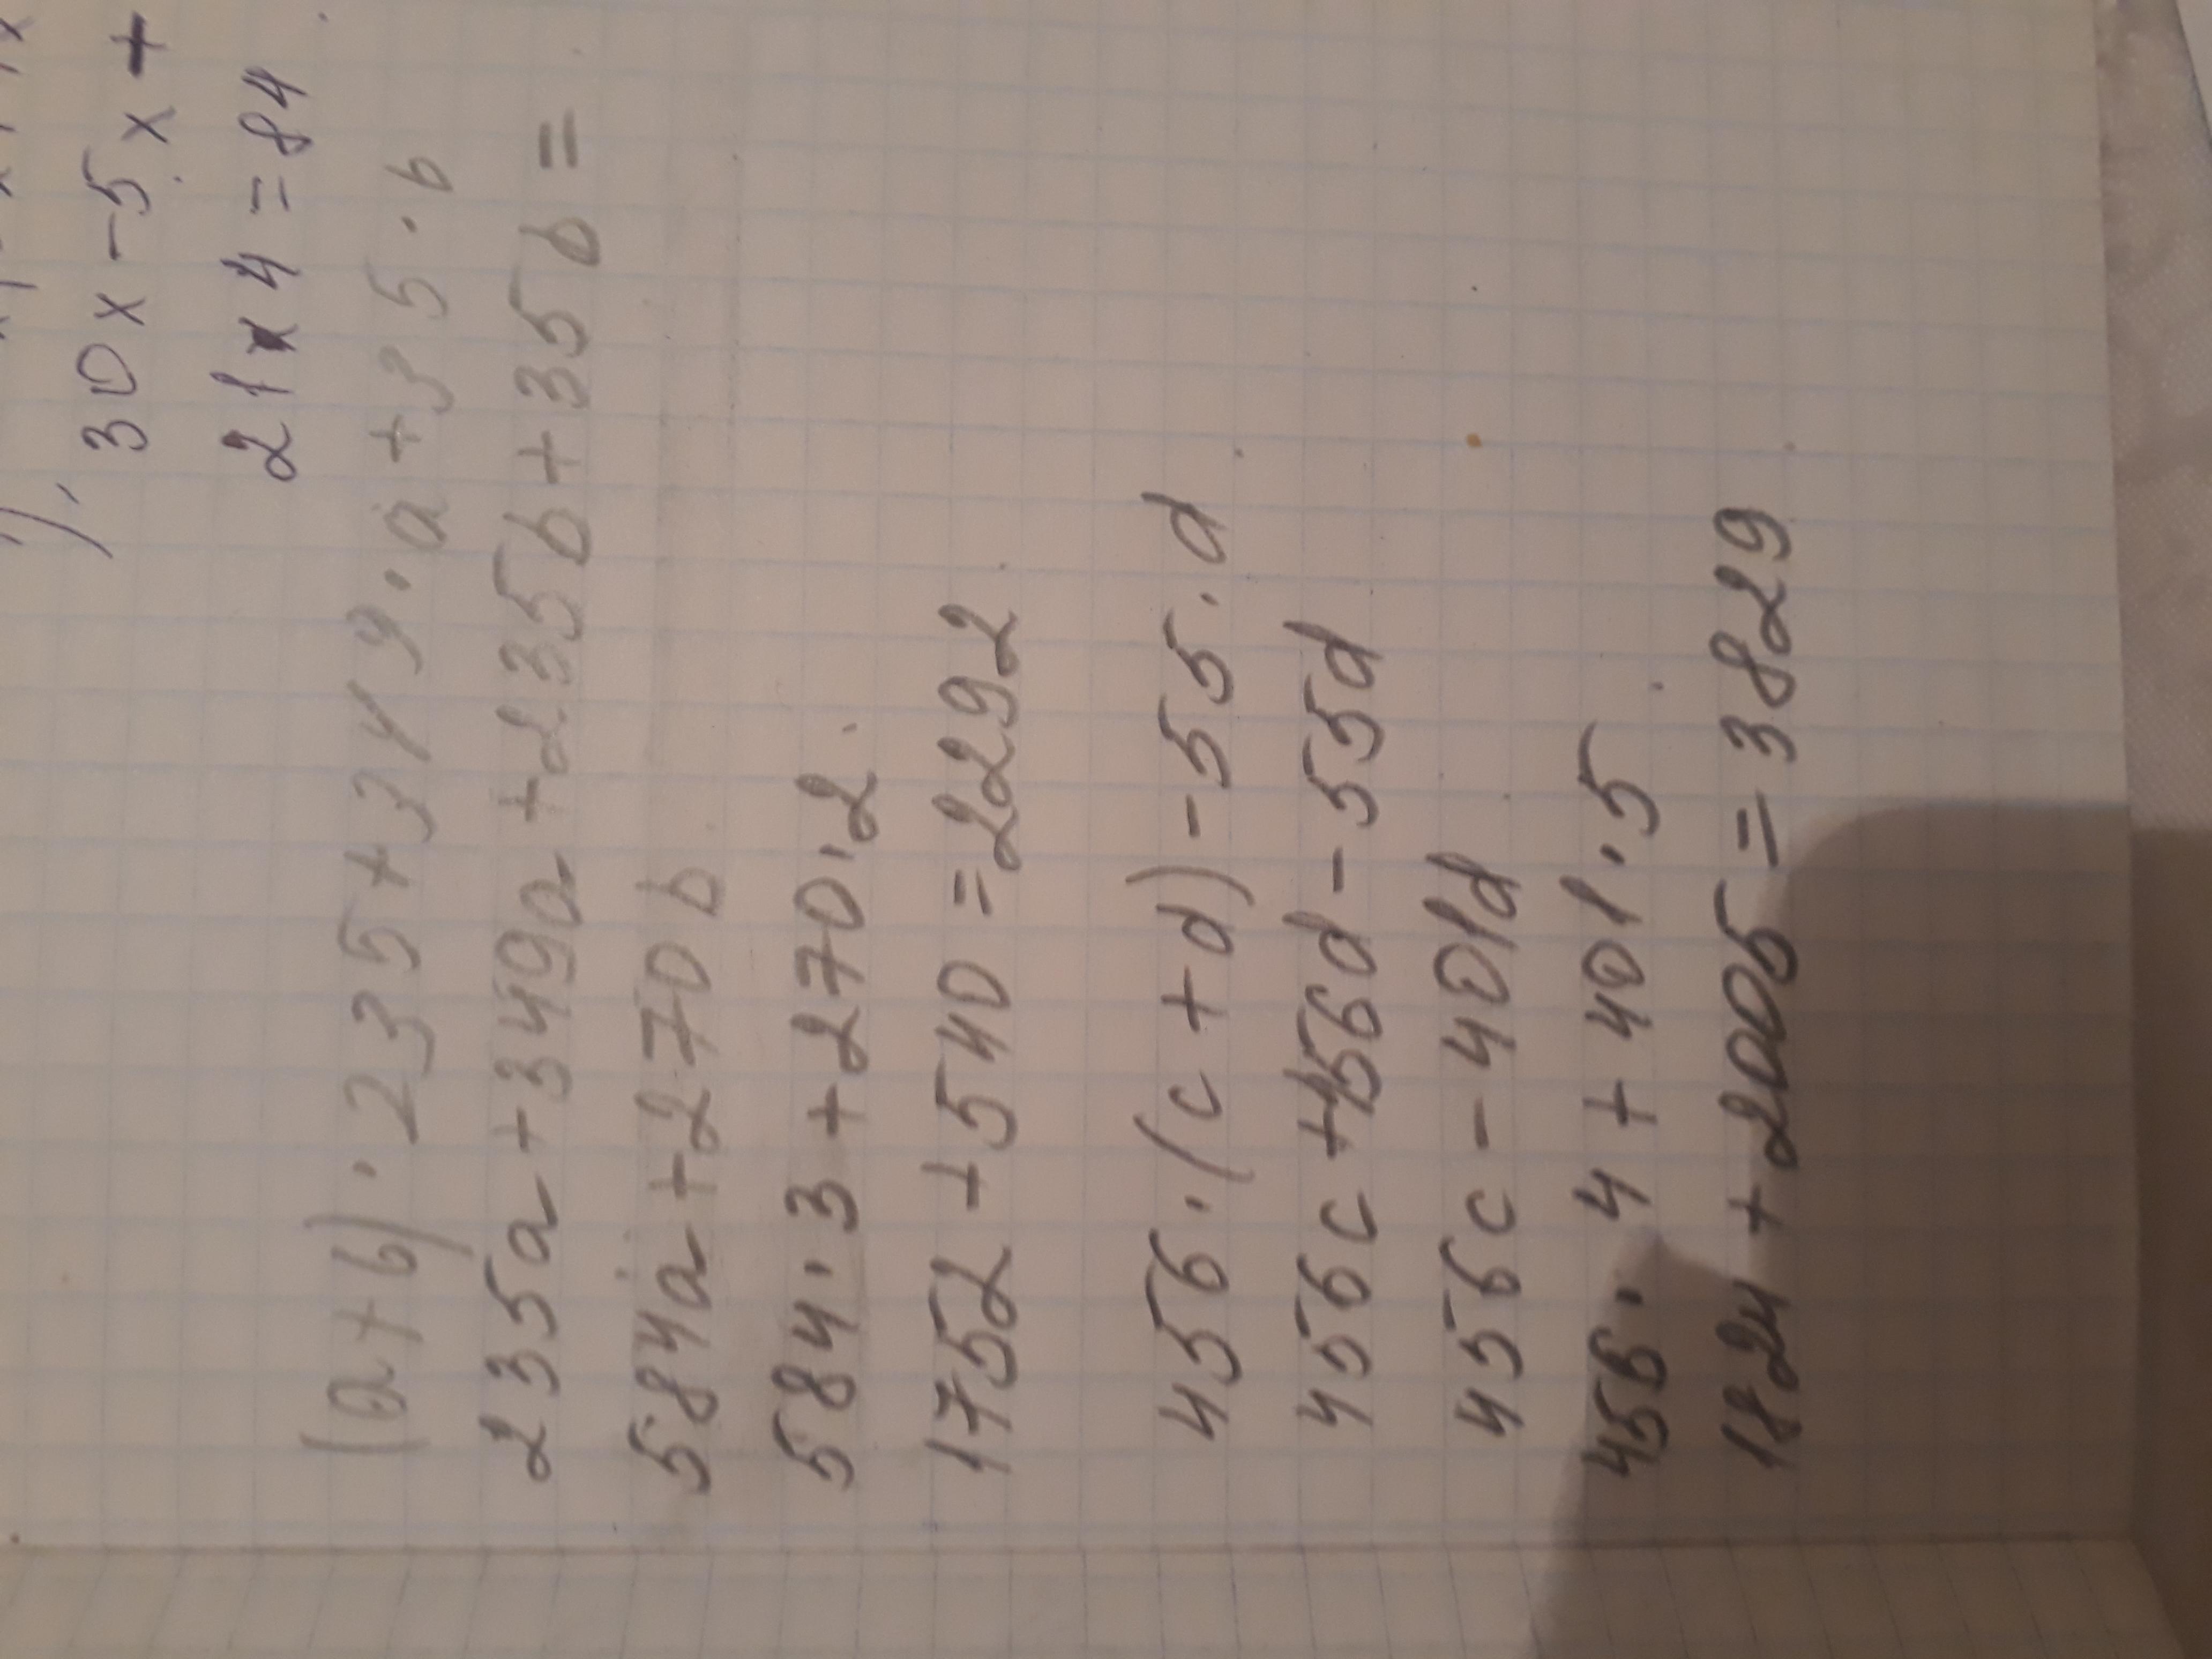 30x-5x+
21x4=84
(a+b)·235+349·a+35·b
235a+349a+235b+35b=
584a+270b
584·3+270·2
1752+540=2292
456·(c+d)-55·d
456c+456d-55d
456c-401d
456·4+401·5
1824+2005=3829